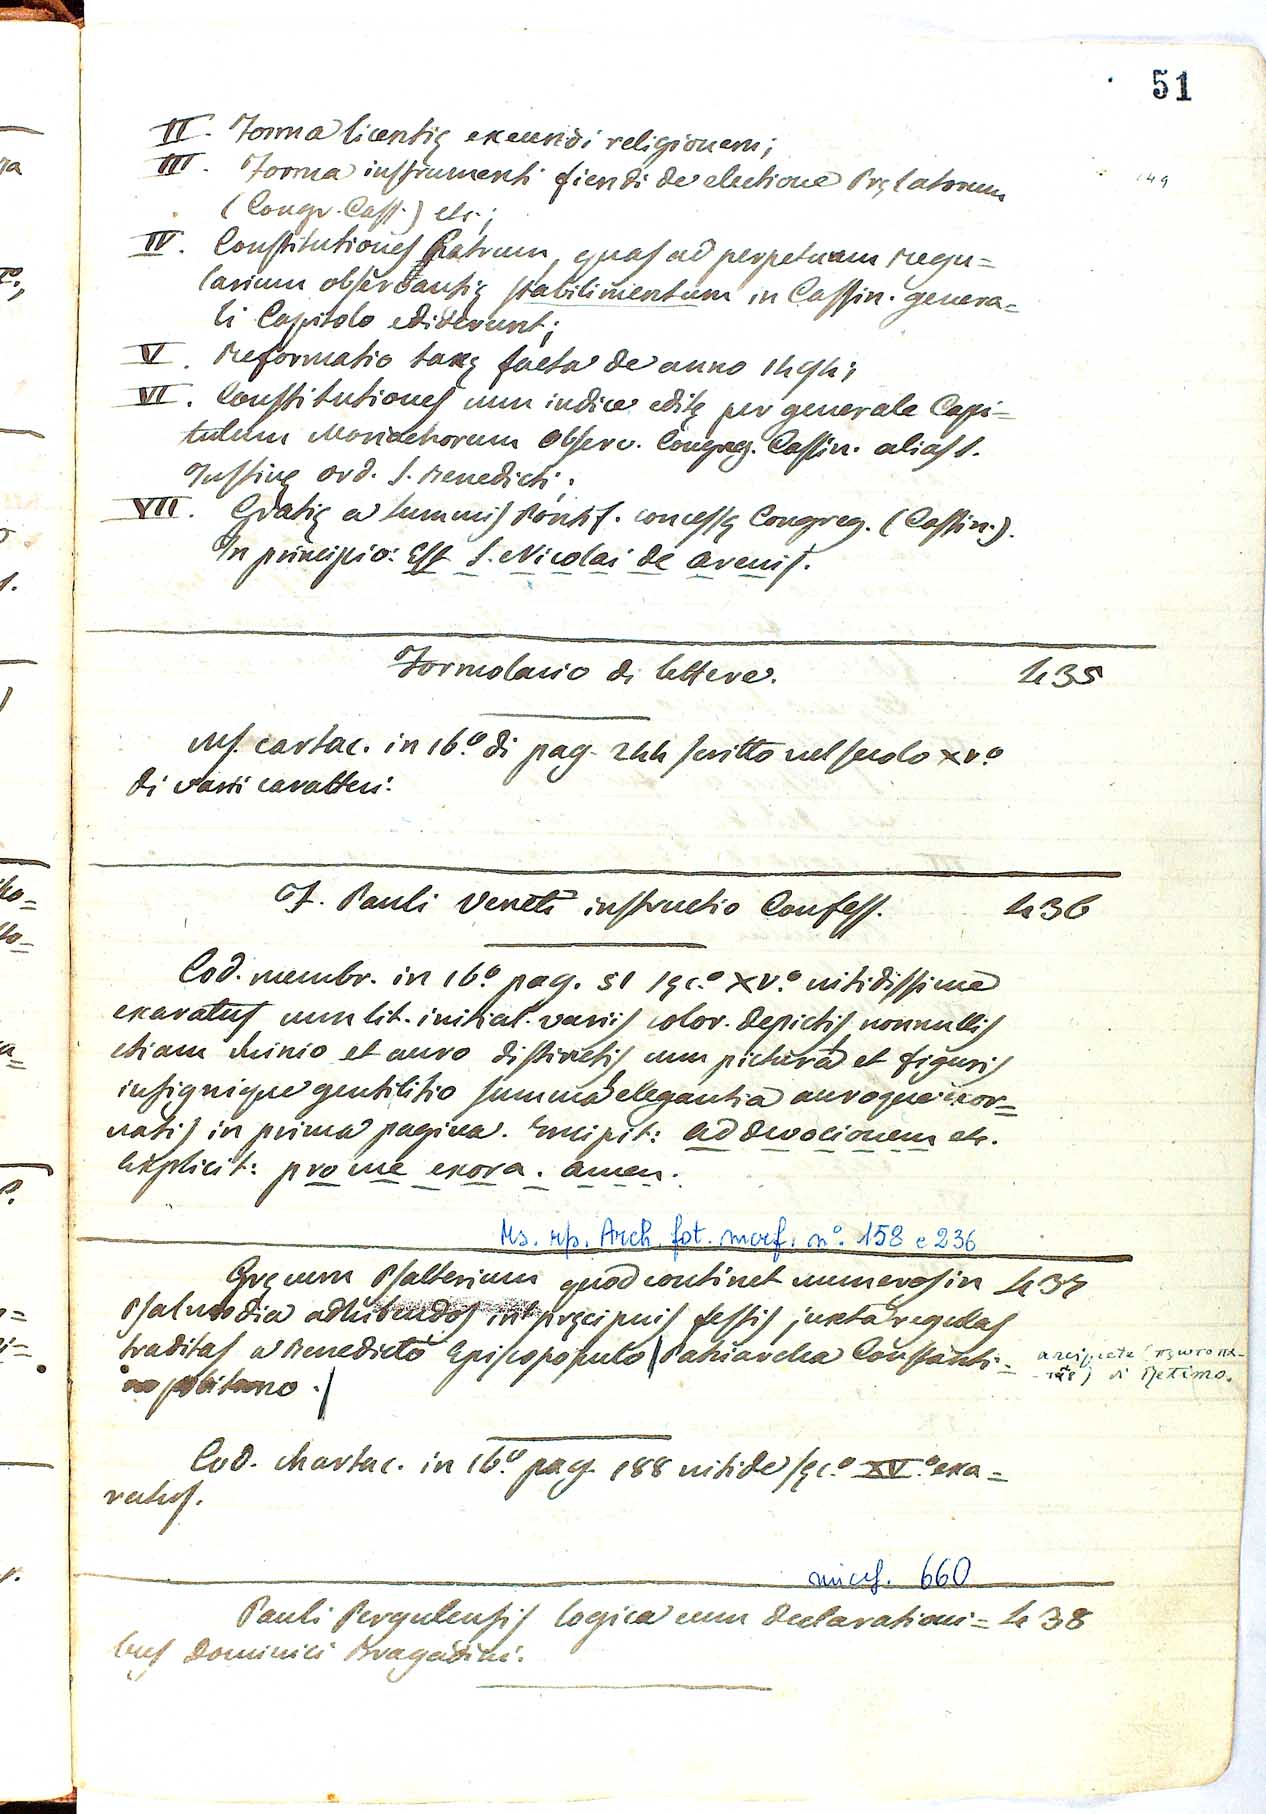 51
II. Forma licentię exeundi religionem;
III. Forma instrumenti fiendi de electione Pręlatorum
(Congr. Cass.) etc.;
IV. Constitutiones Patrum, quas ad perpetuam regu=
larium observantię stabilimentum in Cassin. genera=
li Capitolo ediderunt;
V. Reformatio taxę facta de anno 1494;
VI. Constitutiones cum indice editę per generale Capi=
tulum Monachorum Observ. Congreg. Cassin. alias S.
Justinę Ord. S. Benedicti;
VII. Gratię a Summis Pontif. concessę Congreg. (Cassin.).
In principio: Est S. Nicolai de arenis.
Formolario di lettere. 435
Ms. cartac. in 16.º di pag. 244 scritto nel secolo XV.º
di varii caratteri.
F. Pauli Veneti instructio Confess. 436
Cod. membr. in 16.º pag. 51 sęc.º XV.º nitidissime
exaratus cum lit. initial. variis color. depictis nonnullis
etiam minio et auro distinctis cum pictura et figuris
insignique gentilitio summa elegantia auroque exor=
natis in prima pagina. Incipit: ad devocionem etc.
Explicit: pro me exora. amen.
Ms. rip. Arch. fot. micf. nº. 158 e 236
Gręcum Psalterium quod continet numeros in 437
Psalmodia adhibendos in pręcipuis festis juxta regulas
traditas a Benedicto Episcopopulo Patriarcha Constanti=
nopolitano.
arciprete (πρωτοπα-
-πᾶς) di Retimo.
Cod. chartac. in 16.º pag. 188 nitide sęc.º XV.º exa=
ratus.
micf. 660
Pauli Pergulensis logica cum declarationi= 438
bus Dominici Bragadini.